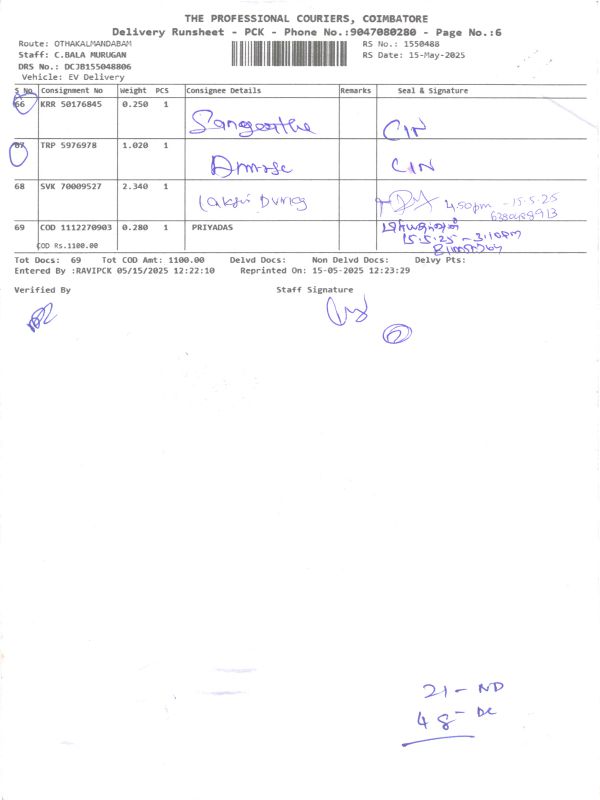 THE PROFESSIONAL COURIERS, COIMBATORE
Delivery Runsheet - PCK - Phone No.:9047080280 - Page No.:6
Route: OTHAKALMANDABAM RS No.: 1550488
Staff: C.BALA MURUGAN RS Date: 15-May-2025
DRS No.: DCJB155048806
Vehicle: EV Delivery
S No. Consignment No Weight PCS Consignee Details Remarks Seal & Signature
66 KRR 50176845 0.250 1
Sangeetha CIN
67 TRP 5976978 1.020 1
CIN
68 SVK 70009527 2.340 1
4.50pm - 15.5.25
69 COD 1112270903 0.280 1 PRIYADAS
15.5.25 - 3.10pm
COD Rs.1100.00
Tot Docs: 69 Tot COD Amt: 1100.00 Delvd Docs: Non Delvd Docs: Delvy Pts:
Entered By :RAVIPCK 05/15/2025 12:22:10 Reprinted On: 15-05-2025 12:23:29
Verified By Staff Signature
21 - ND
48 - DL